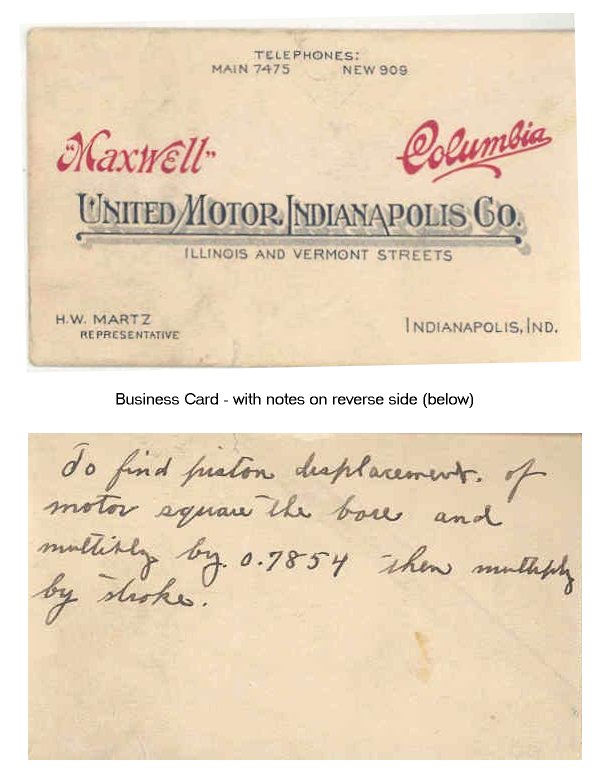 TELEPHONES:
MAIN 7475 NEW 909
"Maxwell" Columbia
UNITED MOTOR INDIANAPOLIS CO.
ILLINOIS AND VERMONT STREETS
H.W. MARTZ
REPRESENTATIVE
INDIANAPOLIS, IND.
Business Card - with notes on reverse side (below)
To find piston displacement. of
motor square the bore and
multiply by. 0.7854 then multiply
by stroke.